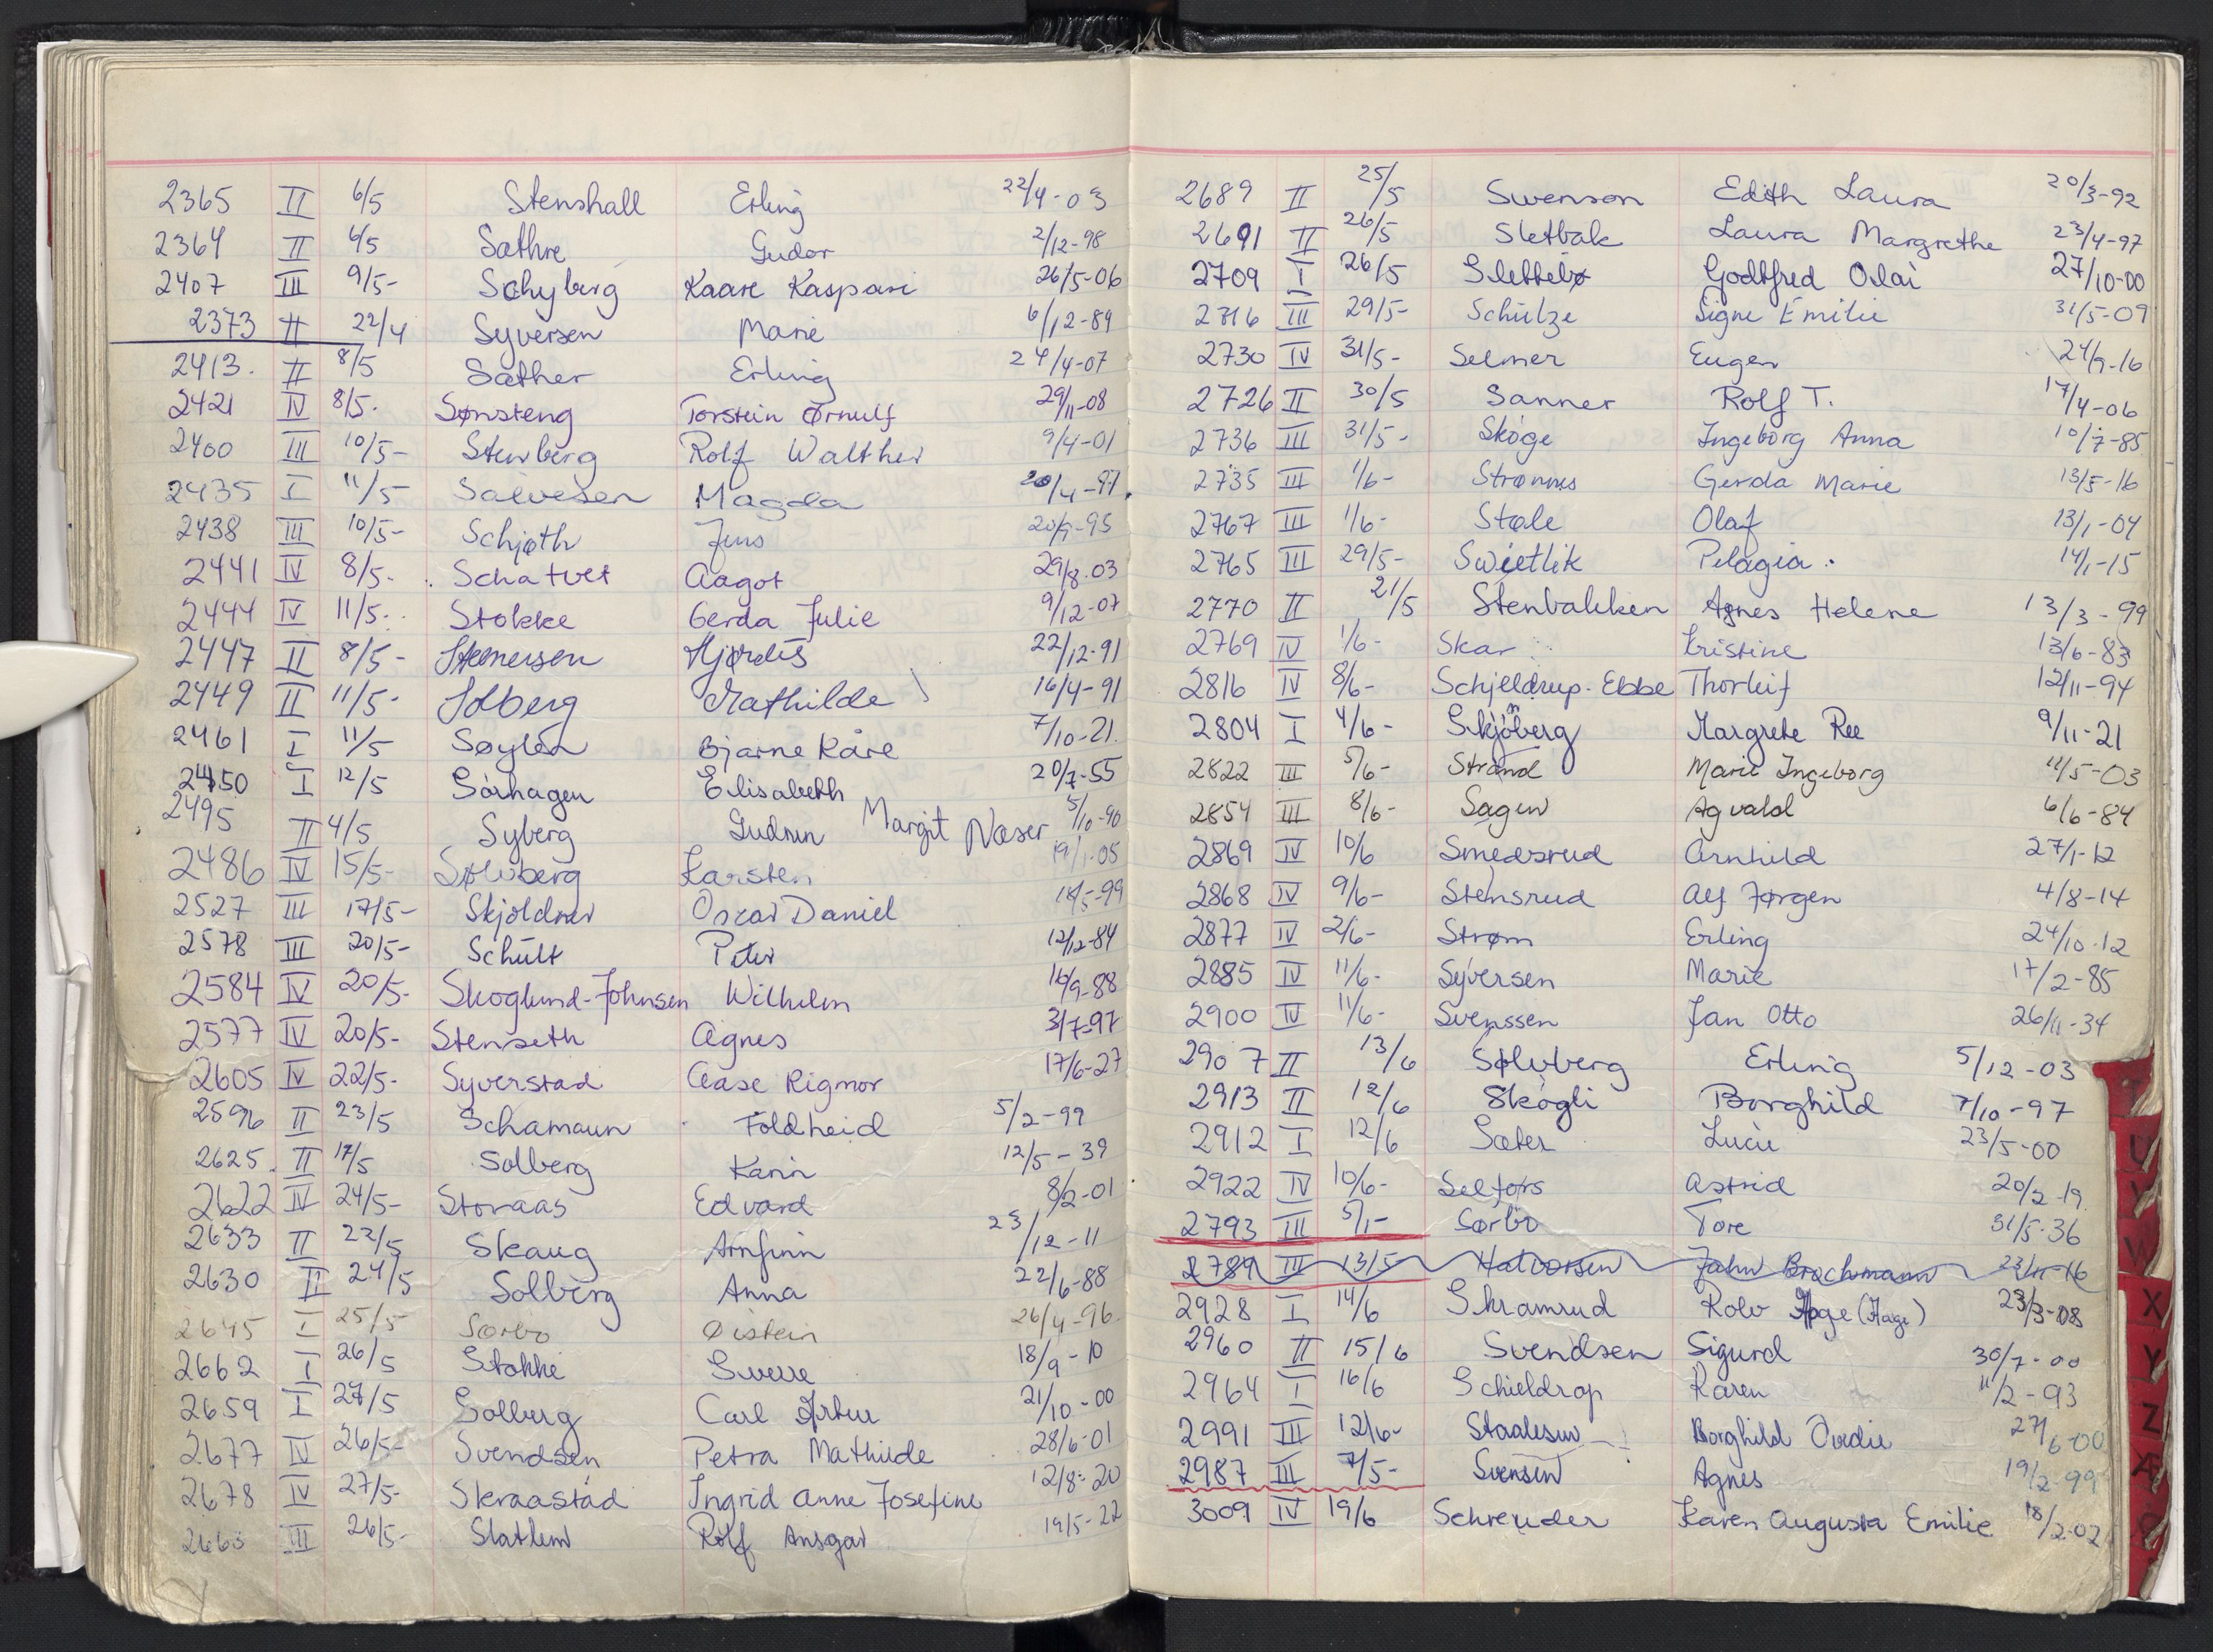 2365 II 6/5 Stenshall Erling 22/4-03
2364 II 6/5 Sæthre Gudor 2/12-98
2407 III 9/5- Schyberg Kaare Kaspari 26/5-06
2373 II 22/4 Syversen Marie 6/12-89
2413. II 8/5 Sæther Erling 24/4-07
2421 IV 8/5. Sønsteng Torstein Ørnulf 29/11-08
2400 III 10/5- Stenberg Rolf Walther 9/4-01
2435 I 11/5 Salvesen Magda 20/4-97.
2438 III 10/5- Schjøth Jens 20/9-95
2441 IV 8/5- Schatvet Aagot 29/8.03
2444 IV 11/5- Stokke Gerda Julie 9/12-07
2447 II 8/5- Steenersen Hjørdis 22/12-91
2449 II 11/5- Solberg Mathilde 16/4-91
2461 I 11/5 Søylen Bjarne Kåre 7/10-21.
2450 I 12/5 Sørhagen Elisabeth 20/7-55
2495 II 4/5 Syberg Gudrun Margit Næser 5/10-90
2486 IV 15/5- Sølvberg Karsten 19/1-05
2527 III 17/5- Skjoldner Oscar Daniel 18/5-99
2578 III 20/5- Schult Peter 12/12-84
2584 IV 20/5- Skoglund-Johnsen Wilhelm 16/9-88
2577 IV 20/5- Stenseth Agnes 3/7-97
2605 IV 22/5- Syverstad Aase Rigmor 17/6-27
2596 II 23/5 Schamaun Foldheid 5/2-99
2625. II 17/5 Solberg Karin 12/5-39
2622 IV 24/5- Storaas Edvard 8/2-01
2633 II 22/5 Skaug Arnfinn 23/12-11
2630 II 24/5 Solberg Anna 22/6-88
2645 I 25/5 Sørbo Øistein 26/4-96
2662 I 26/5 Stokke Sverre 18/9-10
2659 I 27/5 Solberg Carl Artur 21/10-00
2677 IV 26/5- Svendsen Petra Mathilde 28/6-01
2678 IV 27/5- Skraastad Ingrid Anne Josefine 12/8-20
2663 III 26/5- Slatlem Rolf Ansgar 19/5-22
2689 II 25/5 Swenson Edith Laura 20/3-92
2691 II 26/5 Sletbak Laura Margrethe 23/4-97
2709 I 26/5 Slettebø Godtfred Olai 27/10-00
2716 III 29/5- Schulze Signe Emilie 31/5-09
2730 IV 31/5- Selmer Eugen 24/9-16
2726 II 30/5 Sanner Rolf T. 17/4-06
2736 III 31/5- Skoge Ingeborg Anna 10/7-85
2735 III 1/6- Strømns Gerda Marie 13/5-16
2767 III 1/6- Støle Olaf 13/1-04
2765 III 29/5- Swietlik Pelagia. 14/1-15
2770 II 21/5 Stenbakken Agnes Helene 13/3-99
2769 IV 1/6- Skar Kristine 13/6-83
2816 IV 8/6- Schjelderup-Ebbe Thorleif 12/11-94
2804 I 4/6- Skjønberg Margrete Ree 9/11-21
2822 III 5/6- Strand Marie Ingeborg 11/5-03
2854 III 8/6- Sagen Agvald 6/6-84
2869 IV 10/6 Smedsrud Arnhild 27/1-12
2868 IV 9/6- Stensrud Alf Jørgen 4/8-14
2877 IV 2/6- Strøm Erling 24/10.12
2885 IV 11/6- Syversen Marie 17/2-85
2900 IV 11/6- Svenssen Jan Otto 26/11-34
2907 II 13/6 Sølvberg Erling 5/12-03
2913 II 12/6 Skogli Borghild 7/10-97
2912 I 12/6 Sæter Lucie 23/5-00
2922 IV 10/6- Selfors Astrid 20/2-19
2793 III 5/1- Sørbo Tore 31/5-36
2789 III 13/5 Halvorsen Jahn Brochmann 23/11-16
2928 I 14/6 Skramrud Rolv Hage (Hage) 23/3-08
2960 II 15/6 Svendsen Sigurd 30/7-00
2964 I 16/6 Schieldrop Karen 11/2-93
2991 III 12/6- Staalesen Borghild Ovedie 27/6-00
2987 III 7/5- Svensen Agnes 19/2-99
3009 IV 19/6 Schreuder Karen Augusta Emilie 18/2-02
U
V
W
X
Y
Z
Æ